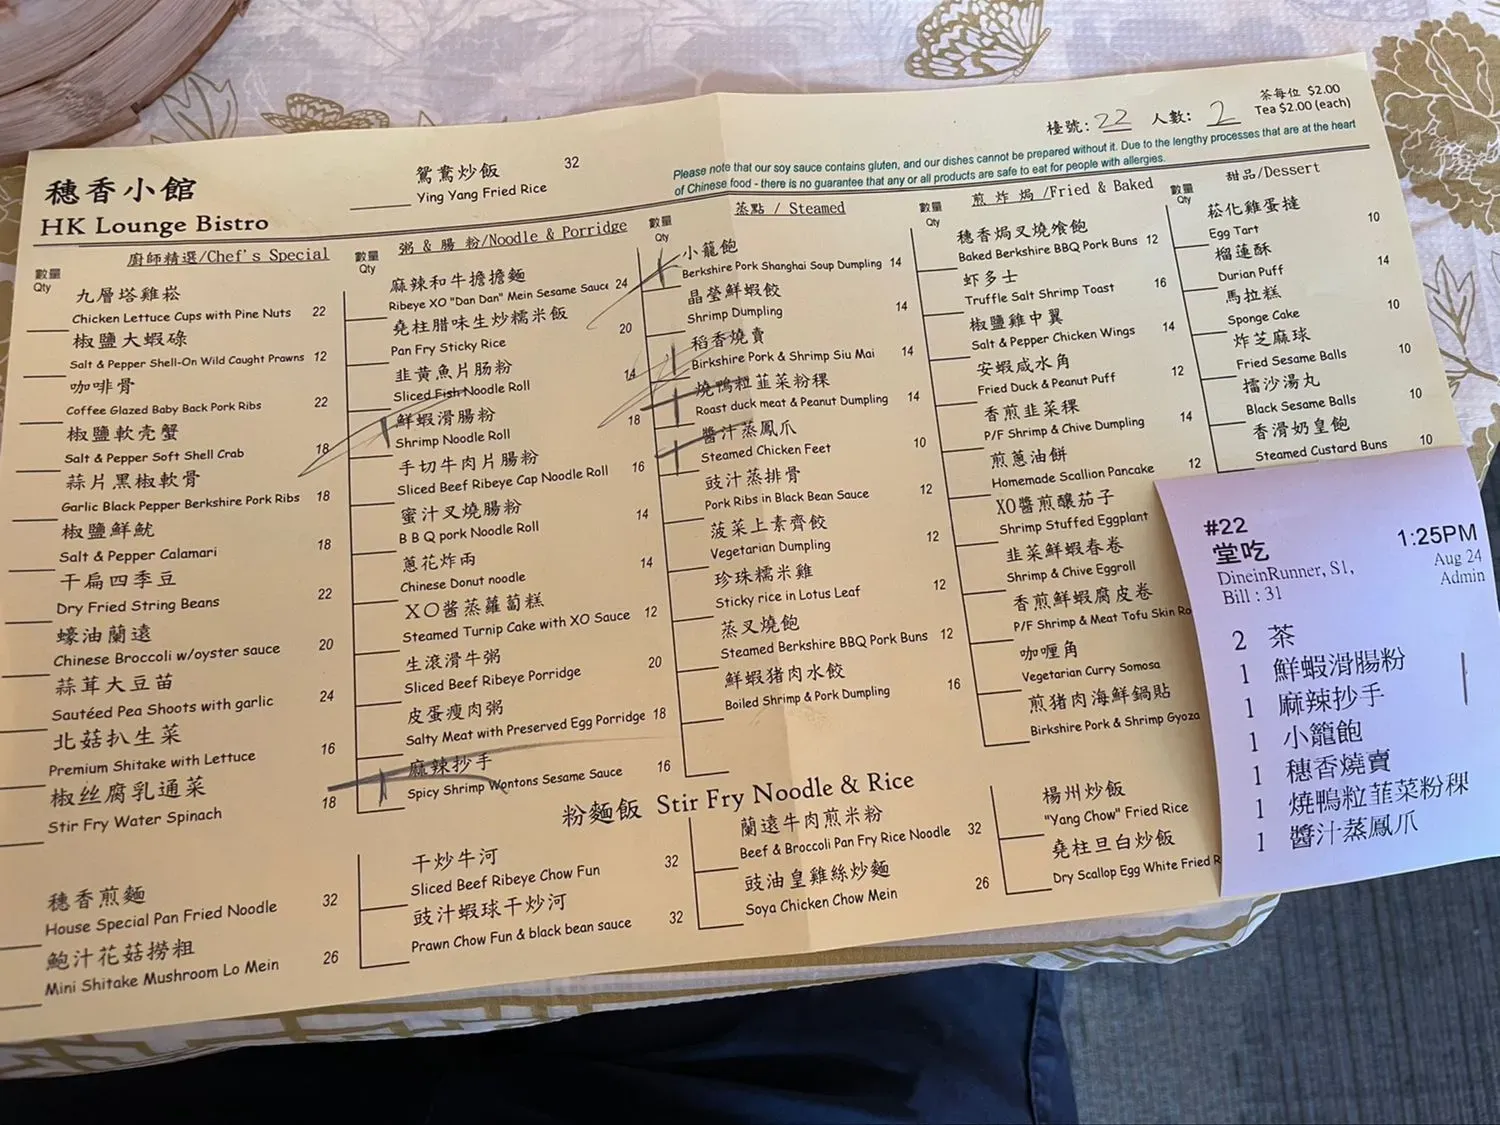 鴛鴦炒飯 32
Ying Yang Fried Rice
茶每位 $2.00
檯號: 22 人數: 2 Tea $2.00 (each)
Please note that our soy sauce contains gluten, and our dishes cannot be prepared without it. Due to the lengthy processes that are at the heart
of Chinese food - there is no guarantee that any or all products are safe to eat for people with allergies.
穗香小館
HK Lounge Bistro
數量
Qty
廚師精選/Chef's Special
九層塔雞崧
Chicken Lettuce Cups with Pine Nuts 22
椒鹽大蝦碌
Salt & Pepper Shell-On Wild Caught Prawns 12
咖啡骨
Coffee Glazed Baby Back Pork Ribs 22
椒鹽軟壳蟹
Salt & Pepper Soft Shell Crab 18
蒜片黑椒軟骨
Garlic Black Pepper Berkshire Pork Ribs 18
椒鹽鮮魷
Salt & Pepper Calamari 18
干扁四季豆
Dry Fried String Beans 22
蠔油蘭遠
Chinese Broccoli w/oyster sauce 20
蒜茸大豆苗
Sautéed Pea Shoots with garlic 24
北菇扒生菜
Premium Shitake with Lettuce 16
椒丝腐乳通菜
Stir Fry Water Spinach 18
數量
Qty
粥 & 腸 粉/Noodle & Porridge
麻辣和牛擔擔麵
Ribeye XO "Dan Dan" Mein Sesame Sauce 24
堯柱腊味生炒糯米飯
Pan Fry Sticky Rice 20
韭黄魚片肠粉
Sliced Fish Noodle Roll 14
鮮蝦滑腸粉
Shrimp Noodle Roll 18
手切牛肉片腸粉
Sliced Beef Ribeye Cap Noodle Roll 16
蜜汁叉燒腸粉
B B Q pork Noodle Roll 14
蔥花炸兩
Chinese Donut noodle 14
XO酱蒸蘿蔔糕
Steamed Turnip Cake with XO Sauce 12
生滾滑牛粥
Sliced Beef Ribeye Porridge 20
皮蛋瘦肉粥
Salty Meat with Preserved Egg Porridge 18
麻辣抄手
Spicy Shrimp Wontons Sesame Sauce 16
數量
Qty
蒸點 / Steamed
小籠飽
Berkshire Pork Shanghai Soup Dumpling 14
晶瑩鮮蝦餃
Shrimp Dumpling 14
稻香燒賣
Birkshire Pork & Shrimp Siu Mai 14
燒鴨粒韮菜粉稞
Roast duck meat & Peanut Dumpling 14
醬汁蒸鳳爪
Steamed Chicken Feet 10
豉汁蒸排骨
Pork Ribs in Black Bean Sauce 12
菠菜上素齊餃
Vegetarian Dumpling 12
珍珠糯米雞
Sticky rice in Lotus Leaf 12
蒸叉燒飽
Steamed Berkshire BBQ Pork Buns 12
鮮蝦猪肉水餃
Boiled Shrimp & Pork Dumpling 16
數量
Qty
煎 炸 焗 /Fried & Baked
穗香焗叉燒飧飽
Baked Berkshire BBQ Pork Buns 12
虾多士
Truffle Salt Shrimp Toast 16
椒鹽雞中翼
Salt & Pepper Chicken Wings 14
安蝦咸水角
Fried Duck & Peanut Puff 12
香煎韭菜稞
P/F Shrimp & Chive Dumpling 14
煎蔥油餅
Homemade Scallion Pancake 12
XO醬煎釀茄子
Shrimp Stuffed Eggplant
韭菜鮮蝦春卷
Shrimp & Chive Eggroll
香煎鮮蝦腐皮卷
P/F Shrimp & Meat Tofu Skin Ro
咖喱角
Vegetarian Curry Somosa
煎猪肉海鮮鍋貼
Birkshire Pork & Shrimp Gyoza
數量
Qty
甜品/Dessert
菘化雞蛋撻
Egg Tart 10
榴蓮酥
Durian Puff 14
馬拉糕
Sponge Cake 10
炸芝麻球
Fried Sesame Balls 10
擂沙湯丸
Black Sesame Balls 10
香滑奶皇飽
Steamed Custard Buns 10
粉麵飯 Stir Fry Noodle & Rice
穗香煎麵
House Special Pan Fried Noodle 32
鮑汁花菇撈粗
Mini Shitake Mushroom Lo Mein 26
干炒牛河
Sliced Beef Ribeye Chow Fun 32
豉汁蝦球干炒河
Prawn Chow Fun & black bean sauce 32
蘭遠牛肉煎米粉
Beef & Broccoli Pan Fry Rice Noodle 32
豉油皇雞絲炒麵
Soya Chicken Chow Mein 26
楊州炒飯
"Yang Chow" Fried Rice
堯柱旦白炒飯
Dry Scallop Egg White Fried R
#22
堂吃 1:25PM
DineinRunner, S1, Aug 24
Bill : 31 Admin
2 茶
1 鮮蝦滑腸粉
1 麻辣抄手
1 小籠飽
1 穗香燒賣
1 燒鴨粒韮菜粉稞
1 醬汁蒸鳳爪